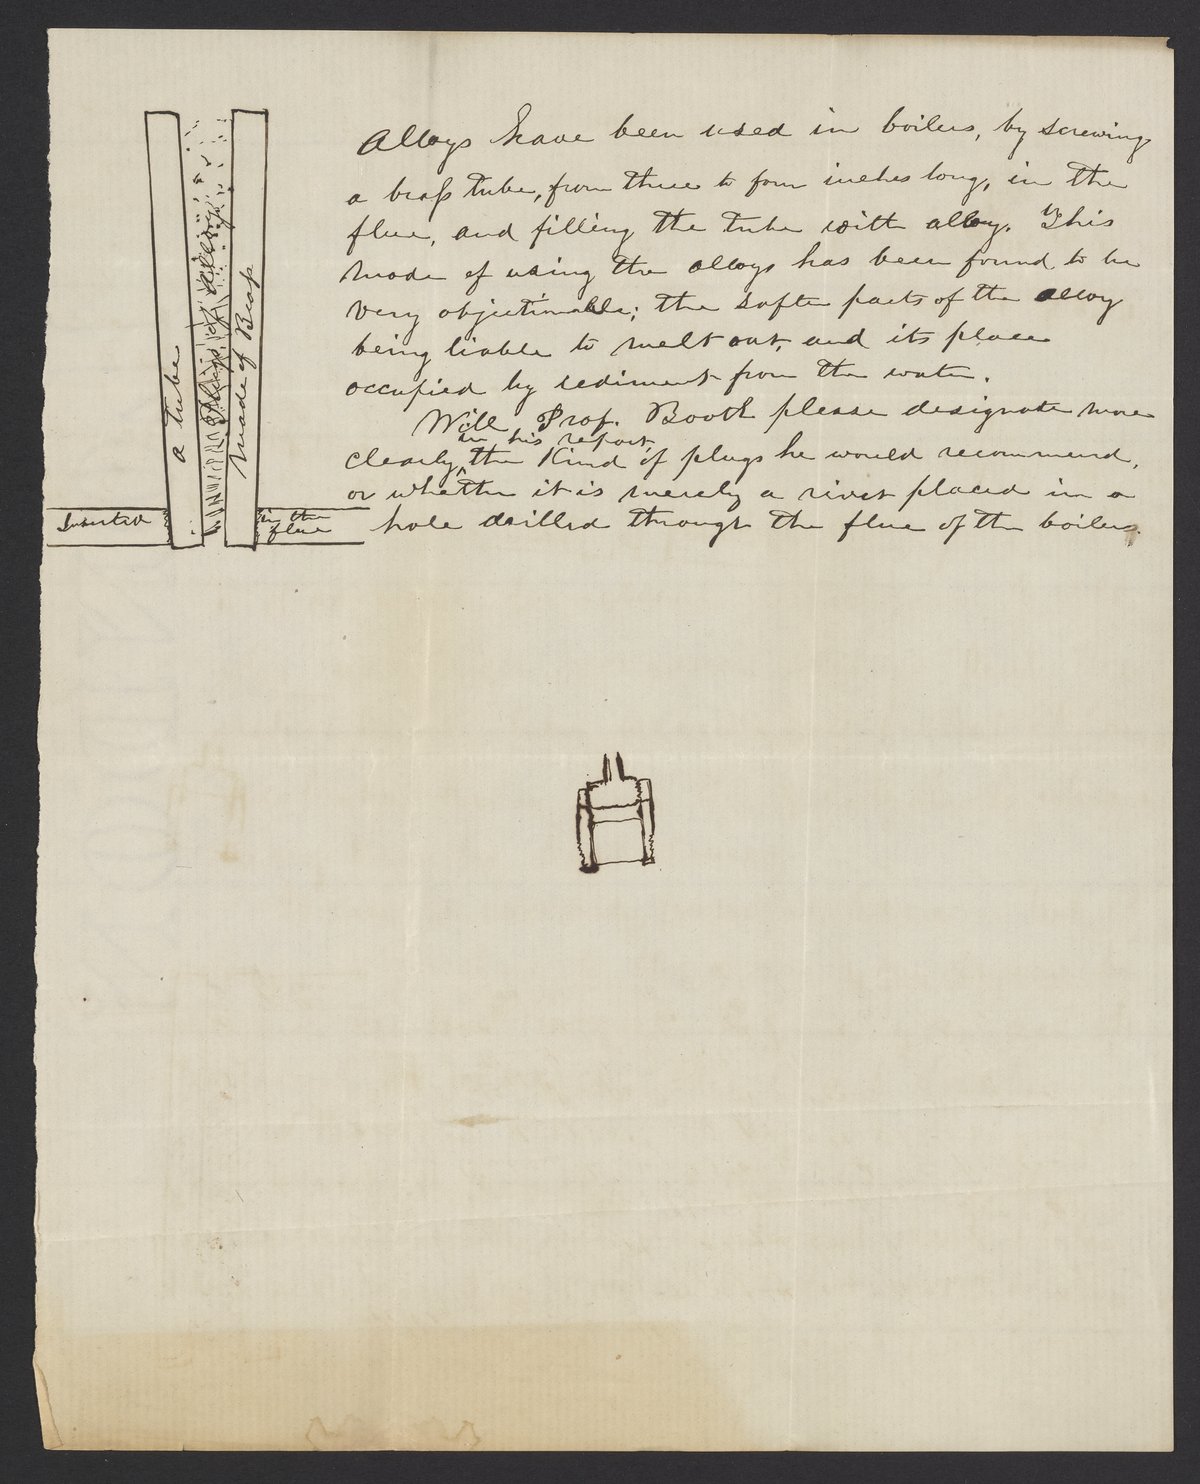 Alloys have been used in boilers, by screwing
a braſs tube, from three to four inches long, in the
flue, and filling the tube with alloy. This
mode of using the alloys has been found to be
very objectionable; the softer parts of the alloy
being liable to melt out, and its place
occupied by sediment from the water.
Will Prof. Booth please designate more
in his report,
clearly the kind of plugs he would recommend,
or whether it is merely a rivet placed in a
hole drilled through the flue of the boilers.
a tube
Plug of Alloy
made of Braſs
Inserted
in the
flue